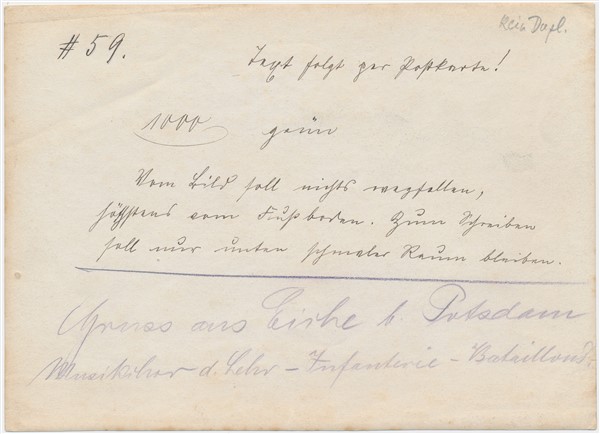 Kein Dupl.
# 59.
Text folgt per Postkarte!
1000 grün
Vom Bild soll nichts wegfallen,
höchstens vom Fußboden. Zum Schreiben
soll nur unten schmaler Raum bleiben.
Gruss aus Eiche b. Potsdam
Musikchor d. Lehr-Infanterie-Bataillons